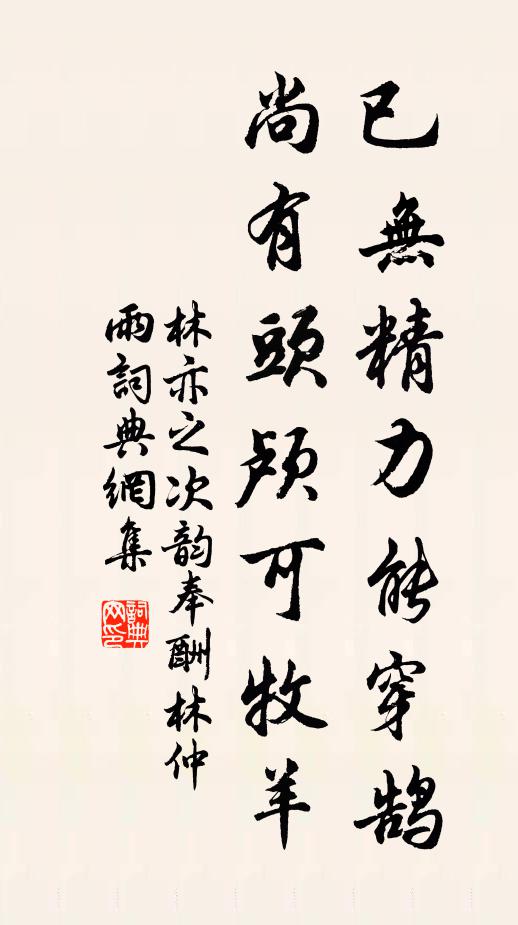 已無精力能穿鵠
尚有頭顱可牧羊
林亦之次韵奉酬林仲
雨詞典網集
詞典
网印